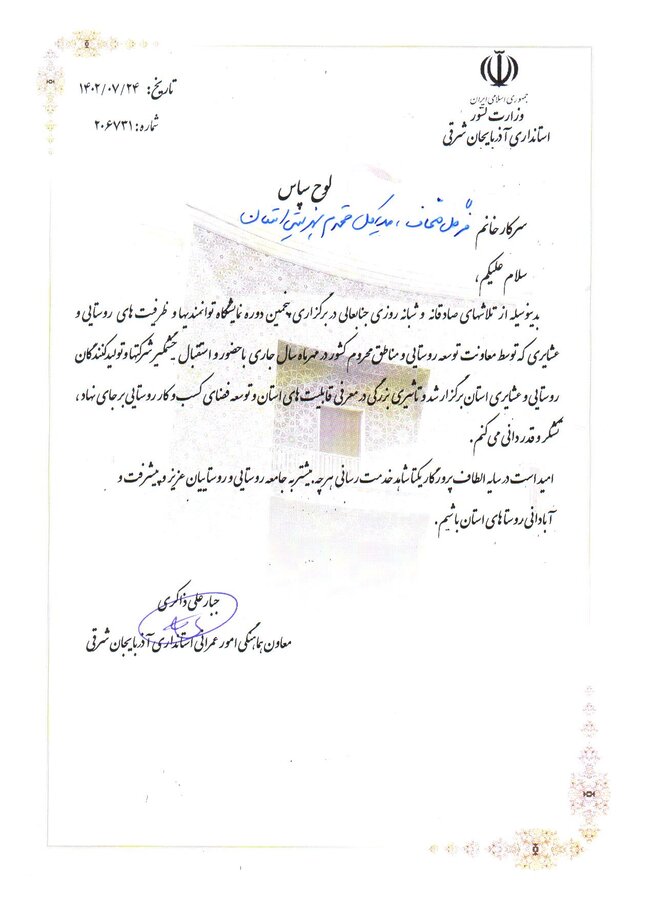 جمهوری اسلامی ایران
وزارت کشور
استانداری آذربایجان شرقی
تاریخ: ۱۴۰۲/۰۷/۲۴
شماره: ۲۰۶۷۳۱
لوح سپاس
سرکار خانم
سلام علیکم،
بدینوسیله از تلاشهای صادقانه و شبانه روزی جنابعالی در برگزاری پنجمین دوره نمایشگاه توانمندیها و ظرفیت های روستایی و
عشایری که توسط معاونت توسعه روستایی و مناطق محروم کشور در مهرماه سال جاری با حضور و استقبال چشمگیر شرکتها و تولیدکنندگان
روستایی و عشایری استان برگزار شد و تاثیری بزرگی در معرفی قابلیت های استان و توسعه فضای کسب و کار روستایی بر جای نهاد،
تشکر و قدردانی می کنم.
امید است در سایه الطاف پروردگار یکتا شاهد خدمت رسانی هرچه بیشتر به جامعه روستایی و روستاییان عزیز و پیشرفت و
آبادانی روستاهای استان باشیم.
جبارعلی ذاکری
معاون هماهنگی امور عمرانی استانداری آذربایجان شرقی